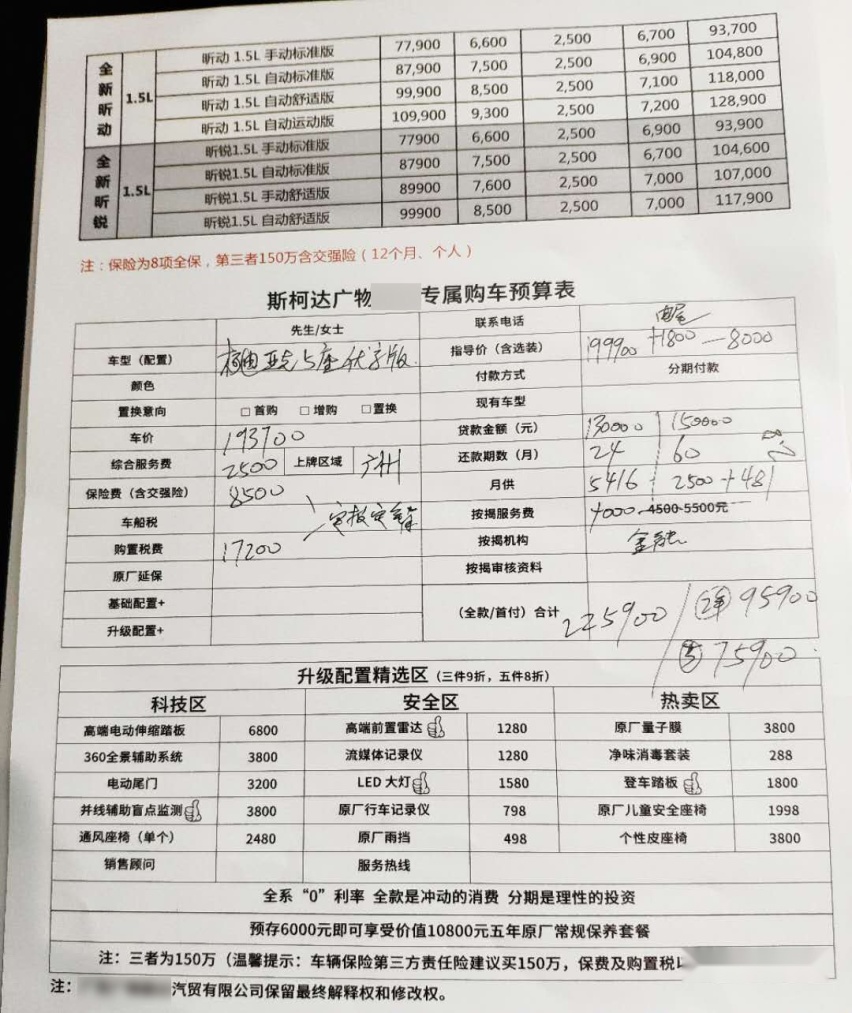 全新昕动 1.5L 昕动 1.5L 手动标准版 77,900 6,600 2,500 6,700 93,700
昕动 1.5L 自动标准版 87,900 7,500 2,500 6,900 104,800
昕动 1.5L 自动舒适版 99,900 8,500 2,500 7,100 118,000
昕动 1.5L 自动运动版 109,900 9,300 2,500 7,200 128,900
全新昕锐 1.5L 昕锐1.5L 手动标准版 77900 6,600 2,500 6,900 93,900
昕锐1.5L 自动标准版 87900 7,500 2,500 6,700 104,600
昕锐1.5L 手动舒适版 89900 7,600 2,500 7,000 107,000
昕锐1.5L 自动舒适版 99900 8,500 2,500 7,000 117,900
注：保险为8项全保，第三者150万含交强险（12个月、个人）
斯柯达广物 专属购车预算表
先生/女士 联系电话 电尾
车型（配置） 5座优享版 指导价（含选装） 199900 +1800 -8000
颜色 付款方式 分期付款
置换意向 □首购 □增购 □置换 现有车型
车价 193700 贷款金额（元） 130000 150000
综合服务费 2500 上牌区域 广州 还款期数（月） 24 60
保险费（含交强险） 8500 月供 5416 2500+481
车船税 实报实销 按揭服务费 4000 4500-5500元
购置税费 17200 按揭机构 金融
原厂延保 按揭审核资料
基础配置+
升级配置+ （全款/首付）合计 225900 / 2年 95900
5 75900
升级配置精选区（三件9折，五件8折）
科技区 安全区 热卖区
高端电动伸缩踏板 6800 高端前置雷达 1280 原厂量子膜 3800
360全景辅助系统 3800 流媒体记录仪 1280 净味消毒套装 288
电动尾门 3200 LED 大灯 1580 登车踏板 1800
并线辅助盲点监测 3800 原厂行车记录仪 798 原厂儿童安全座椅 1998
通风座椅（单个） 2480 原厂雨挡 498 个性皮座椅 3800
销售顾问 服务热线
全系“0”利率 全款是冲动的消费 分期是理性的投资
预存6000元即可享受价值10800元五年原厂常规保养套餐
注：三者为150万（温馨提示：车辆保险第三方责任险建议买150万，保费及购置税
注： 汽贸有限公司保留最终解释权和修改权。